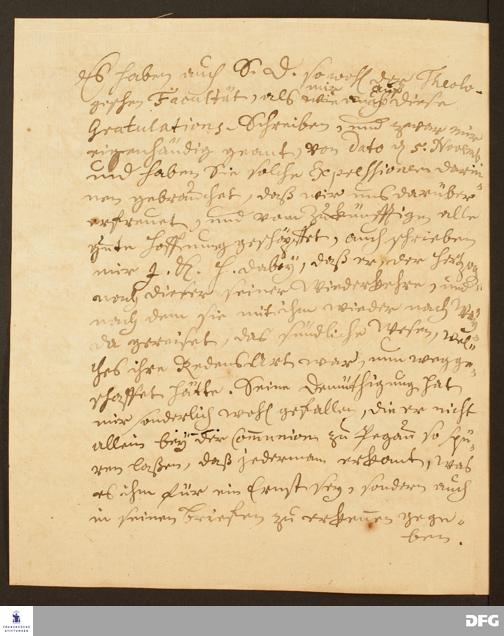 Es haben auch S. D. sowohl der Theolo-
gischen Facultät, als mir auf diese
Gratulations-Schreiben, und zwar mir
eigenhändig geant, von dato d. 5. Novemb.
und haben Sie solche Expressionen darin-
nen gebrauchet, daß wir uns darüber
erfreuet, und vom zukünfftigen alle
gute Hoffnung geschöpffet, auch schrieben
mir dabey, daß er, der Herzog
nach dieser seiner Wiederkehre, und
nach dem sie mit ihm wieder nach
da gereiset, das sündliche Wesen, wel-
ches ihre Redens-Art war, nun wegge-
schaffet hätte. Seine Demüthigung hat
mir sonderlich wohl gefallen, die er nicht
allein bey der Communion zu Pegau so spü-
ren laßen, daß jedermann erkant, was
es ihm für ein Ernst sey, sondern auch
in seinen Briefen zu erkennen gege-
ben.
FRANCKESCHE STIFTUNGEN
DFG